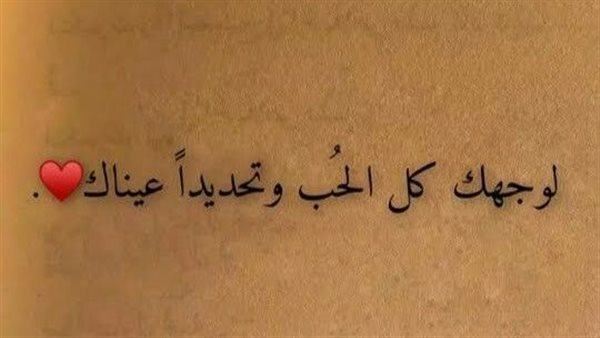 لوجهك كل الحُب وتحديداً عيناك♥️.